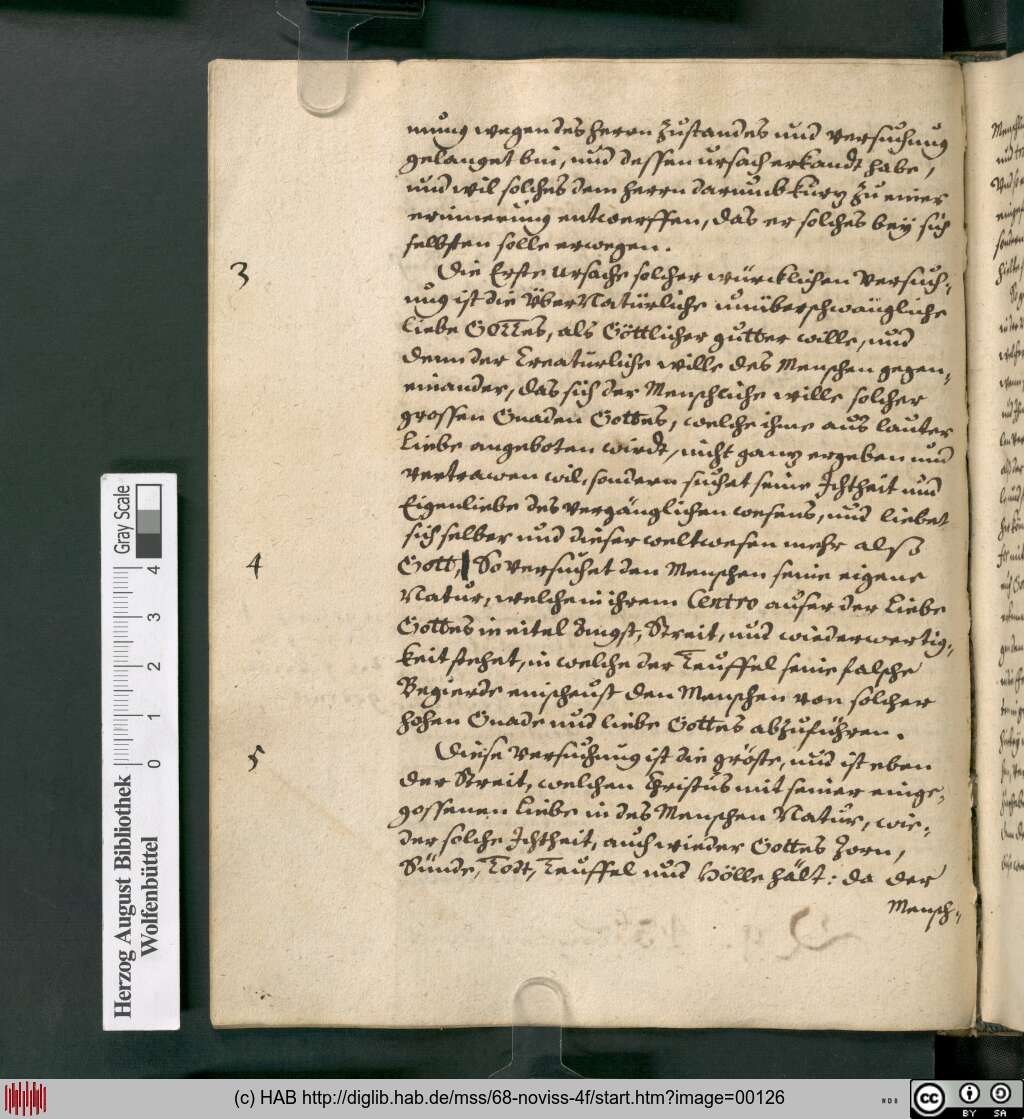 mung wegen des Herrn Zustandes und versuchung
gelanget bin, und dessen ursach erkandt habe,
und wil solches dem Herrn darumb kurtz zu einer
erinnerung entwerffen, das er solches bey sich
selbsten solle erwegen.
3
Die Erste Ursache solcher würcklichen Versuch-
ung ist die ÜberNatürliche unüberschwängliche
Liebe GOTTes, als Göttlicher gutter wille, und
denn der Creatürliche wille des Menschen gegen-
einander, das sich der Menschliche wille solcher
grossen Gnaden Gottes, welche ihme aus lauter
Liebe angeboten wirdt, nicht gantz ergeben und
vertrawen wil, sondern suchet seine Ichtheit und
Eigenliebe des vergänglichen wesens, und liebet
sich selber und dieser welt wesen mehr alß
4
Gott, So versuchet den Menschen seine eigene
Natur, welche in ihrem Centro auser der Liebe
Gottes in eitel Angst, Streit, und wiederwertig-
keit stehet, in welche der Teuffel seine falsche
Begierde einscheust den Menschen von solcher
hohen Gnade und liebe Gottes abzuführen.
5
Diese versuchung ist die gröste, und ist eben
der Streit, welchen Christus mit seiner einge-
gossenen Liebe in des Menschen Natur, wie-
der solche Ichtheit, auch wieder Gottes Zorn,
Sünde, Todt, Teuffel und Hölle hält: da der
Mensch-
Gray Scale
0 1 2 3 4
Herzog August Bibliothek
Wolfenbüttel
(c) HAB http://diglib.hab.de/mss/68-noviss-4f/start.htm?image=00126
cc BY SA